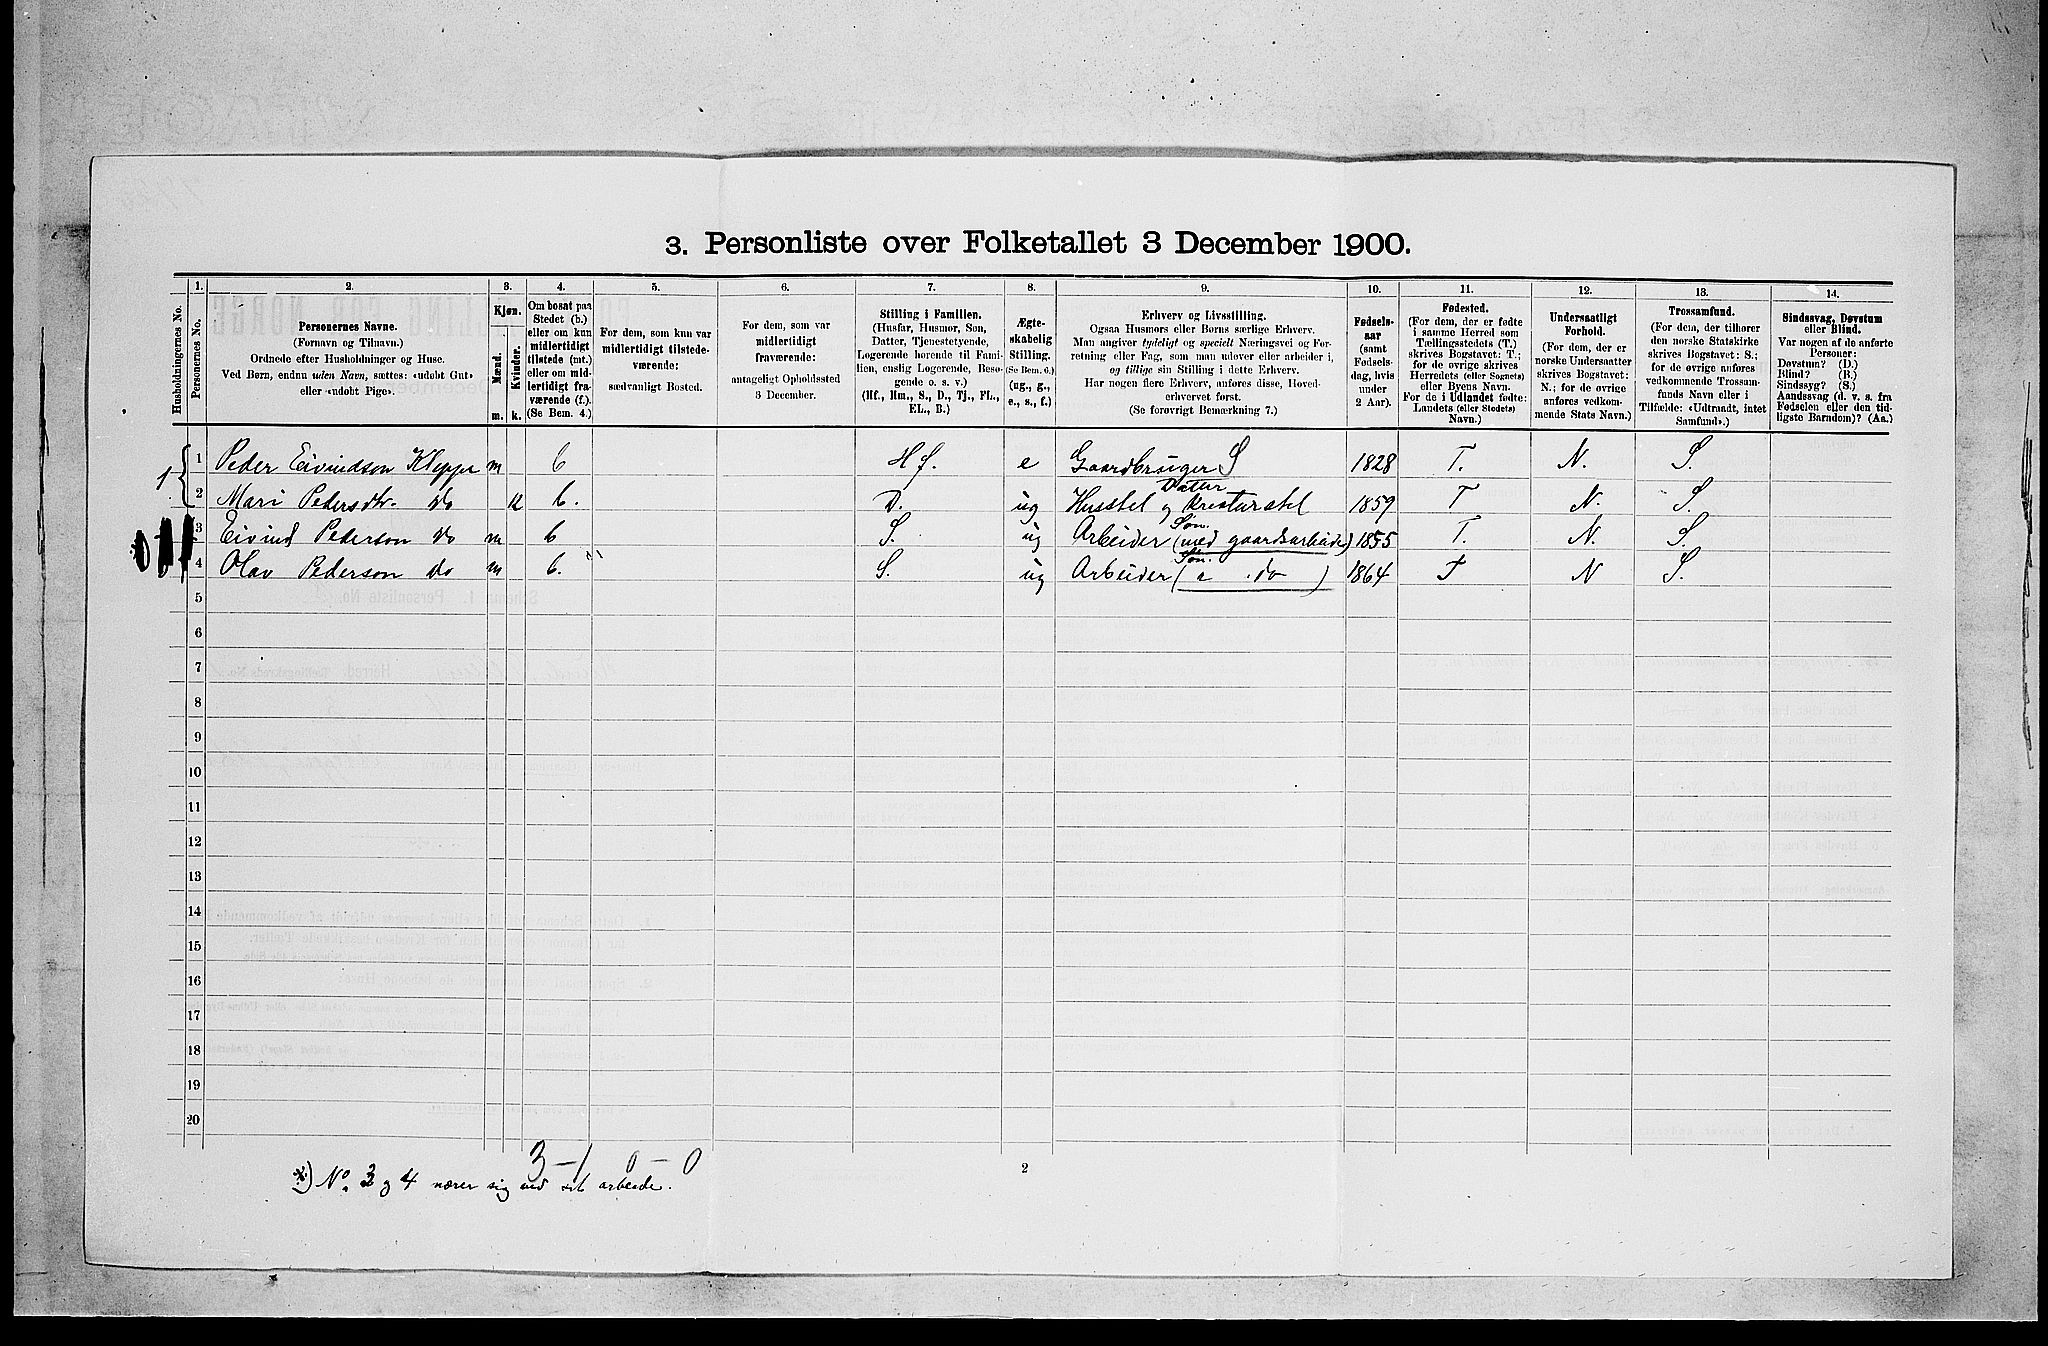 3. Personliste over Folketallet 3 December 1900.
Husholdningernes No.
1.
Personernes No.
2.
Personernes Navne.
(Fornavn og Tilnavn.)
Ordnede efter Husholdninger og Huse.
Ved Børn, endnu uden Navn, sættes: «udøbt Gut»
eller «udøbt Pige».
3.
Kjøn.
Mænd.
Kvinder.
m. k.
4.
Om bosat paa
Stedet (b.)
eller om kun
midlertidigt
tilstede (mt.)
eller om mid-
lertidigt fra-
værende (f.).
(Se Bem. 4.)
5.
For dem, som kun var
midlertidigt tilstede-
værende:
sædvanligt Bosted.
6.
For dem, som var
midlertidigt
fraværende:
antageligt Opholdssted
3 December.
7.
Stilling i Familien.
(Husfar, Husmor, Søn,
Datter, Tjenestetyende,
Logerende hørende til Fami-
lien, enslig Logerende, Besø-
gende o. s. v.)
(Hf., Hm., S., D., Tj., FL.,
EL., B.)
8.
Ægte-
skabelig
Stilling.
(Se Bem. 6.)
(ug., g.,
e., s., f.)
9.
Erhverv og Livsstilling.
Ogsaa Husmors eller Børns særlige Erhverv.
Man angiver tydeligt og specielt Næringsvei og For-
retning eller Fag, som man udøver eller arbeider i,
og tillige sin Stilling i dette Erhverv.
Har nogen flere Erhverv, anføres disse, Hoved-
erhvervet først.
(Se forøvrigt Bemærkning 7.)
10.
Fødsels-
aar
(samt
Fødsels-
dag, hvis
under
2 Aar).
11.
Fødested.
(For dem, der er fødte
i samme Herred som
Tællingsstedets (T.)
skrives Bogstavet: T.;
for de øvrige skrives
Herredets (eller Sognets)
eller Byens Navn.
For de i Udlandet fødte:
Landets (eller Stedets)
Navn.)
12.
Undersaatligt
Forhold.
(For dem, der er
norske Undersaatter
skrives Bogstavet:
N.; for de øvrige
anføres vedkom-
mende Stats Navn.)
13.
Trossamfund.
(For dem, der tilhører
den norske Statskirke
skrives Bogstavet: S.;
for de øvrige anføres
vedkommende Trossam-
funds Navn eller i
Tilfælde: «Udtraadt, intet
Samfund».)
14.
Sindssvag, Døvstum
eller Blind.
Var nogen af de anførte
Personer:
Døvstum? (D.)
Blind? (B.)
Sindssyg? (S.)
Aandssvag (d. v. s. fra
Fødselen eller den tid-
ligste Barndom)? (Aa.)
1 1 Peder Eivindson Kleppe m b Hf. e Gaardbruger S 1828 T. N. S.
Datur
2 Mari Pedersdtr. do k b. D. ug Husstel og kreaturstel 1859 T N. S.
Søn.
3 Eivind Pederson do m b S. ug Arbeider (med gaardsarbeide) 1855 T. N. S.
Søn.
4 Olav Pederson do m b. S. ug Arbeider ( " do ) 1864 T N S.
5
6
7
8
9
10
11
12
13
14
15
16
17
18
19
20
3 – 1 0 – 0
2
*) No. 3 og 4 nærer sig ved sit arbeide.